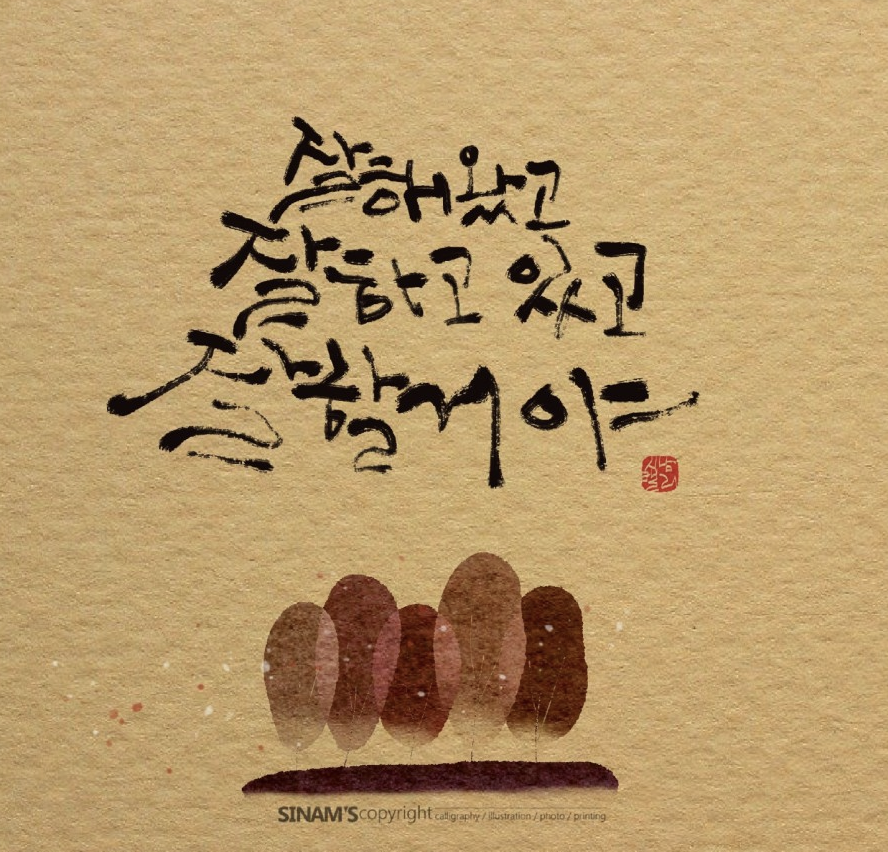 잘해왔고
잘하고 있고
잘할거야
SINAM'S copyright calligraphy / illustration / photo / printing